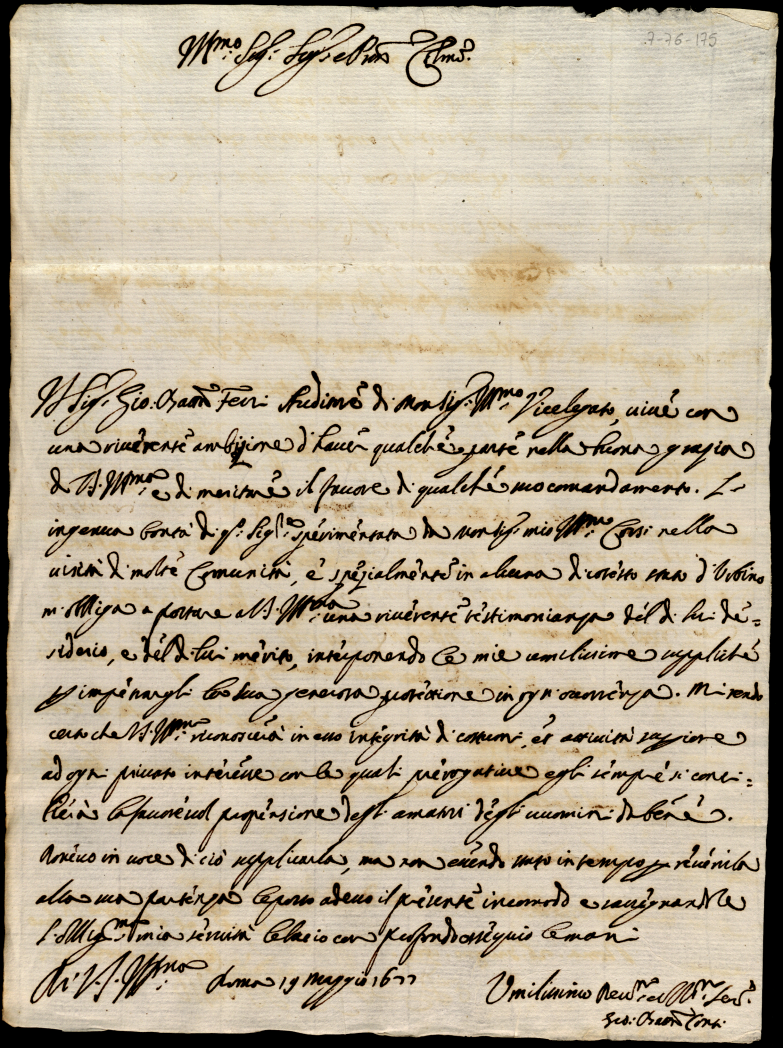 7-76-175
Ill.mo Sig.r Sig.r e P.ron Col.mo
Il Sig.r Gio: Batta Ferri Audit.re di Monsig.r Ill.mo Vicelegato, vive con
una riverente ambizione d'haver qualche parte nella buona grazia
di V.S. Ill.ma e di meritare il favore di qualche suo comandamento. L'
ingenua bontà di q.o Sig.re sperimentata da Monsig.r mio Ill.mo Corsi nella
visita di molte Comunità, e spezialmente in alcuna di cotesto stato d'Urbino
m'obliga a portare a V.S. Ill.ma una riverente testimonianza del di lui de=
siderio, e del di lui merito, interponendo le mie umilissime suppliche
p impetrargli la sua generosa protezione in ogni occorrenza. Mi rendo
certo che V.S. Ill.ma riconoscerà in esso integrità di costumi, et attività superiore
ad ogni privato interesse con le quali prerogative egli sempre si conci=
lierà la favorevol propensione degli amatori degli uomini da bene.
Dovevo in voce di ciò supplicarla, ma non essendo stato in tempo p reverirla
alla sua partenza le porto adesso il presente incomodo e rassegnandole
l'oblig.ma mia servità le bacio con profondo ossequio le mani
Di V.S. Ill.ma Roma 19 Maggio 1677
Umilissimo Dev.mo et Obl.mo Ser.re
Gio: Batta Conti